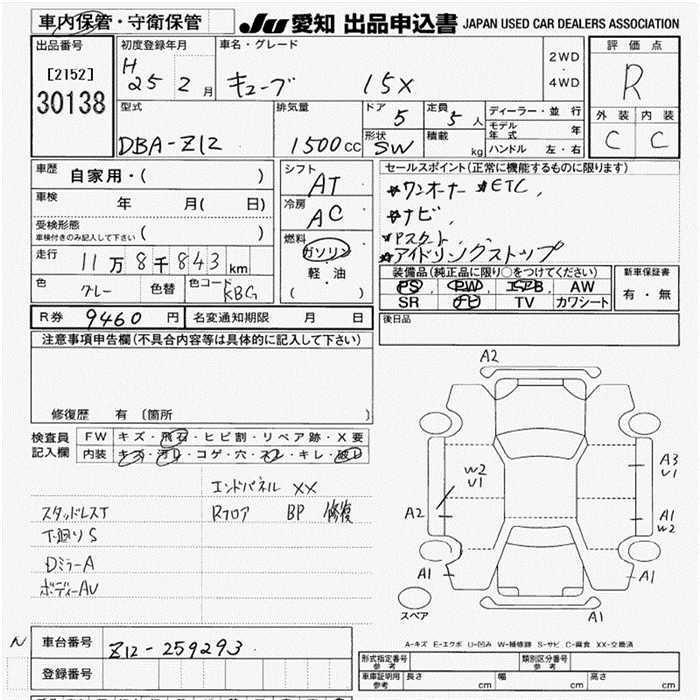 車内保管・守衛保管 JU 愛知 出品申込書 JAPAN USED CAR DEALERS ASSOCIATION
出品番号 初度登録年月 車名・グレード 2WD 評価点
[2152] H 25 2月 キューブ 15X ・ 4WD R
30138 型式 排気量 ドア 5 定員 5人 ディーラー・並行 外装 内装
DBA-Z12 1500cc 形状 SW 積載 kg モデル年式 年 C C
ハンドル 左・右
車歴 自家用・( ) シフト AT セールスポイント(正常に機能するものに限ります)
車検 年 月( 日) 冷房 AC ★ワンオーナー ★ETC,
受検形態 ★ナビ,
車検付きのみ記入して下さい ( ) 燃料 ★アイドリングストップ
走行 11万8千843km ガソリン・軽・油 ( )
装備品(純正品に限り○をつけてください) 新車保証書
色 グレー 色替 色コード KBG PS PW エアB AW 有・無
SR ナビ TV カワシート
R券 9460円 名変通知期限 月 日 後日品
注意事項申告欄(不具合内容等は具体的に記入して下さい)
修復歴 有 〔箇所 〕
検査員記入欄 FW キズ・飛石・ヒビ割・リペア跡・X要
内装 キズ・汚レ・コゲ・穴・スレ・キレ・破レ
エンドパネル XX
スタッドレスT Rフロア BP 修復
T廻りS
DミラーA
ボディーAU
A2
W2
U1
A3
U1
A2
A1
W2
A1
A1
スペア
A1
A-キズ E-エクボ U-凹み W-補修跡 S-サビ C-腐食 XX-交換済
N 車台番号 Z12-259293
登録番号
形式指定番号 参考 類別区分番号 参考
車庫証明用 参考 長さ cm 幅 cm 高さ cm